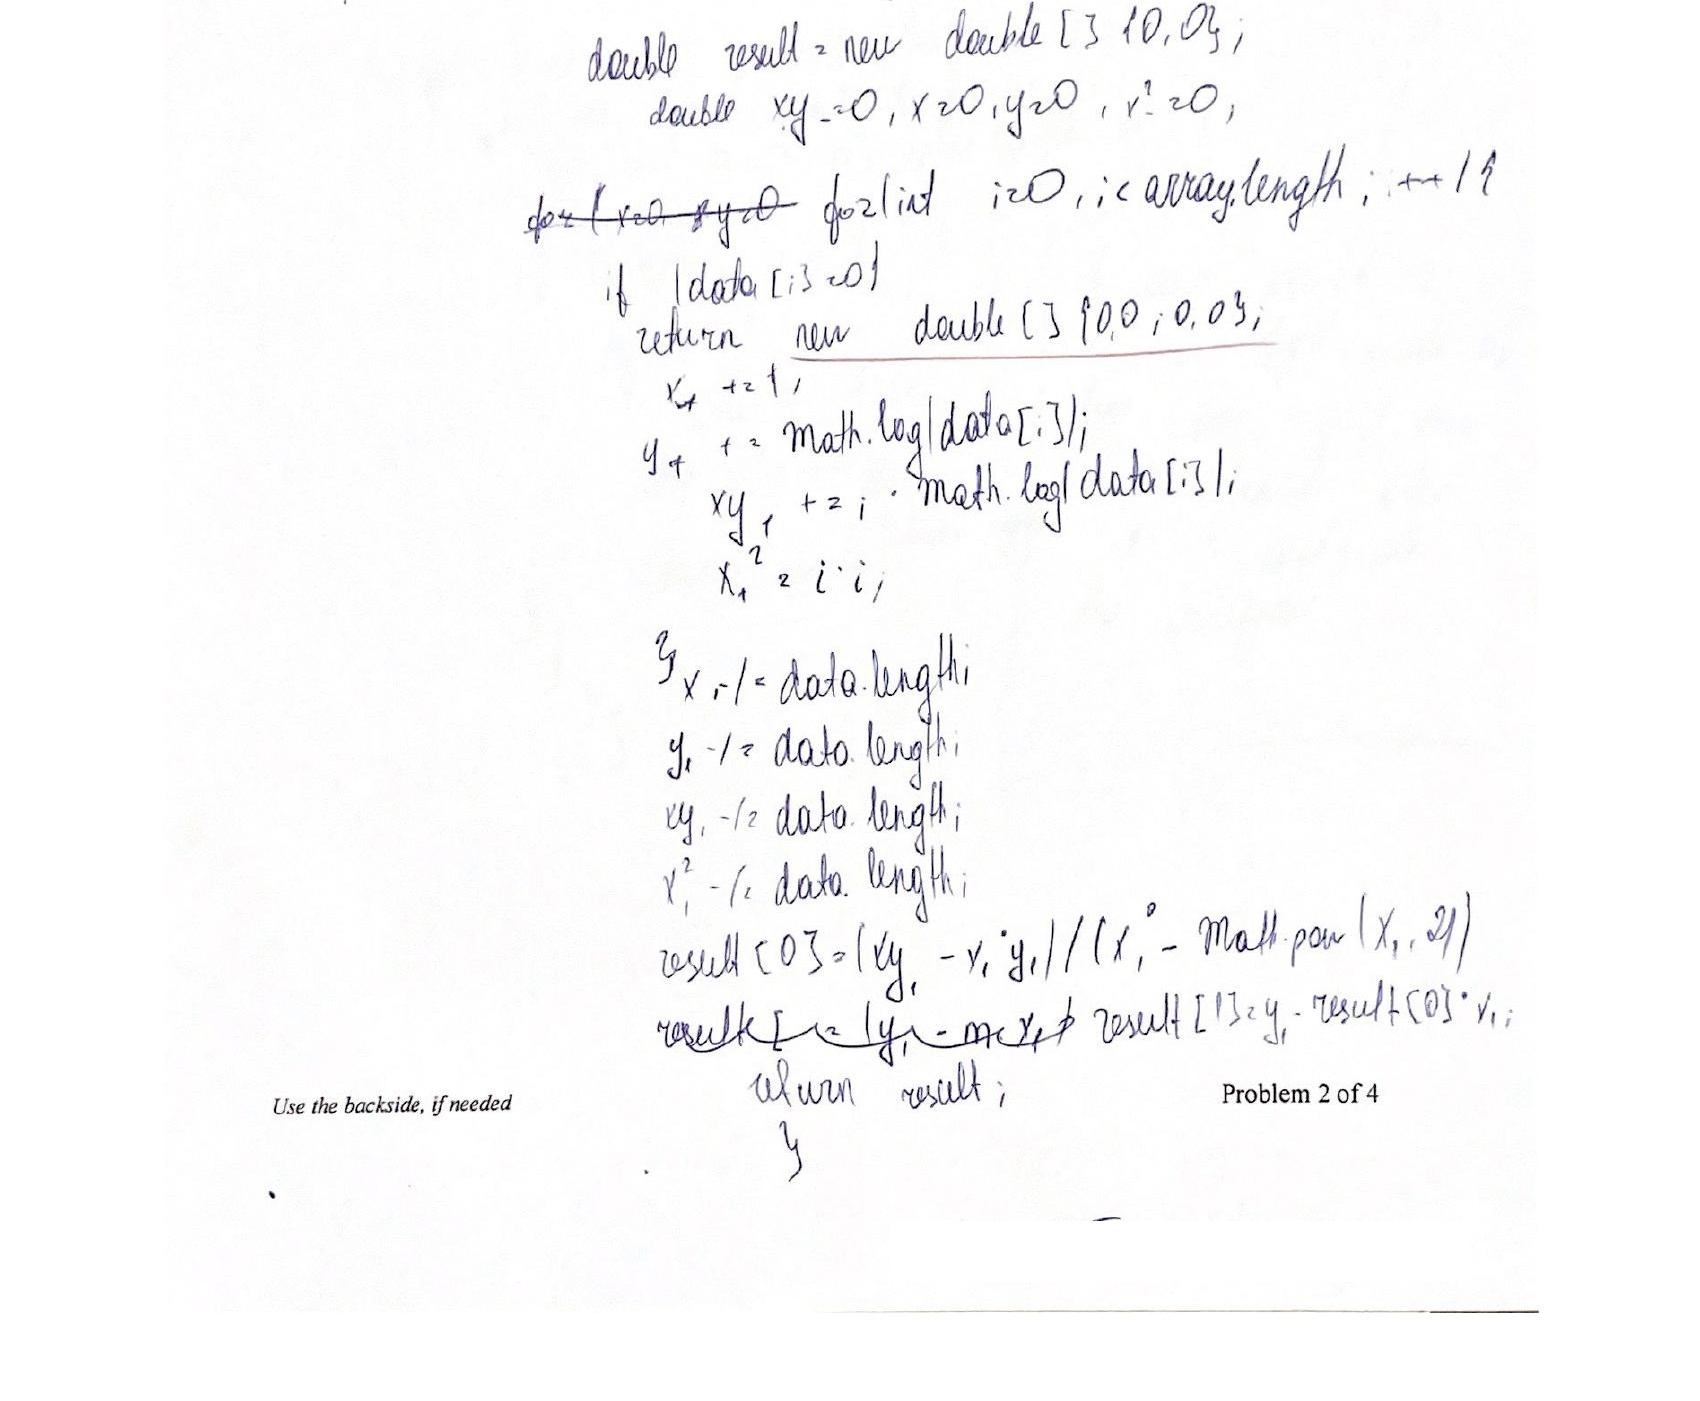 double result = new double [] {0,0};
double xy = 0, x=0, y=0, x²=0;
for (x=0 y=0 for(int i=0, i< array.length; i++){
if (data[i]=0)
return new double [] {0,0 ; 0,0};
x₁ +=1;
y₁ += math.log(data[i]);
xy₁ += i · math.log(data[i]);
x₁² = i·i;
}
x₁ /= data.length;
y₁ /= data.length;
xy₁ /= data.length;
x₁² /= data.length;
result[0]=(xy₁ - x₁·y₁)/(x₁² - Math.pow(x₁,2))
result [ = (y₁ - m·x₁) result[1]=y₁ - result[0]·x₁;
return result;
Use the backside, if needed Problem 2 of 4
}